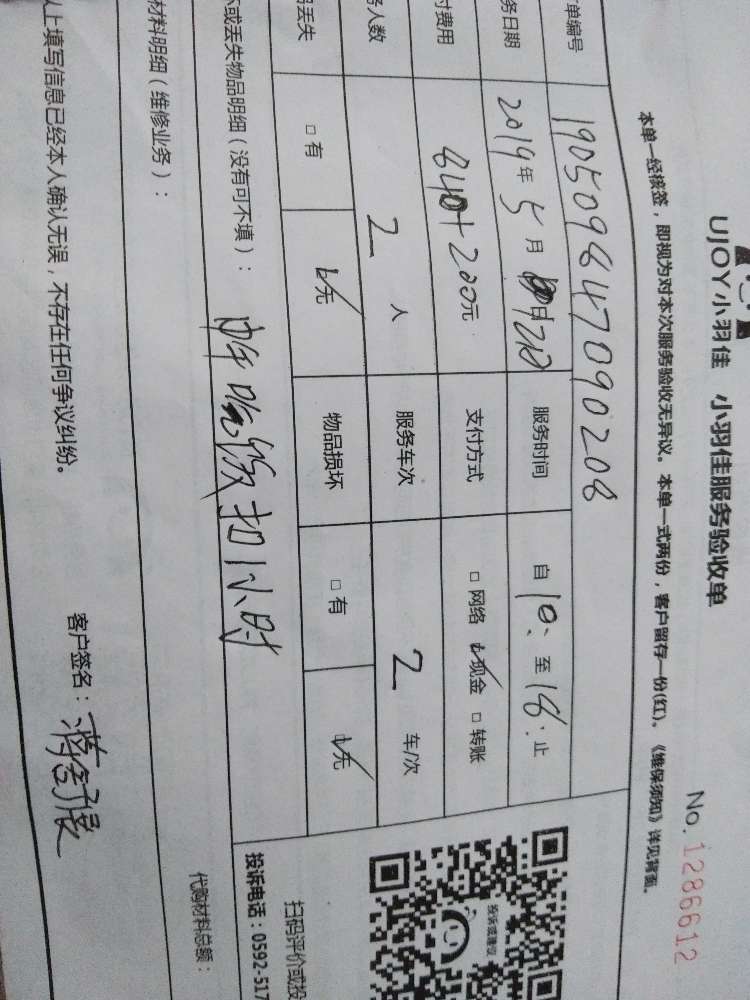 UJOY小羽佳 小羽佳服务验收单
No.1286612
本单一经核签，即视为对本次服务验收无异议。本单一式两份，客户留存一份(红)。《维保须知》详见背面。
单编号 190509847090208
务日期 2019年5月 日 服务时间 自10:至18:止
付费用 840+200元 支付方式 □网络 ☑现金 □转账
务人数 2人 服务车次 2车/次
丢失 □有 ☑无 物品损坏 □有 ☑无
坏或丢失物品明细（没有可不填）： 扣1小时
材料明细（维修业务）：
代购材料总额：
以上填写信息已经本人确认无误，不存在任何争议纠纷。
客户签名：
投诉或建议
扫码评价或投
投诉电话：0592-517